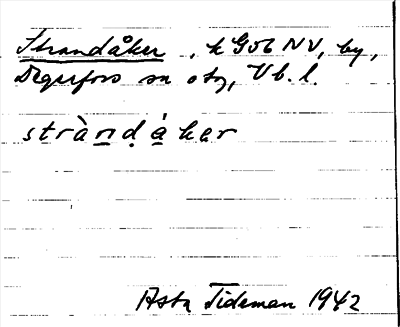 Strandåker, k G56 NV, by,
Degerfors sn o tg, Vb. l.
strànḍák̀er
Asta Tideman 1942